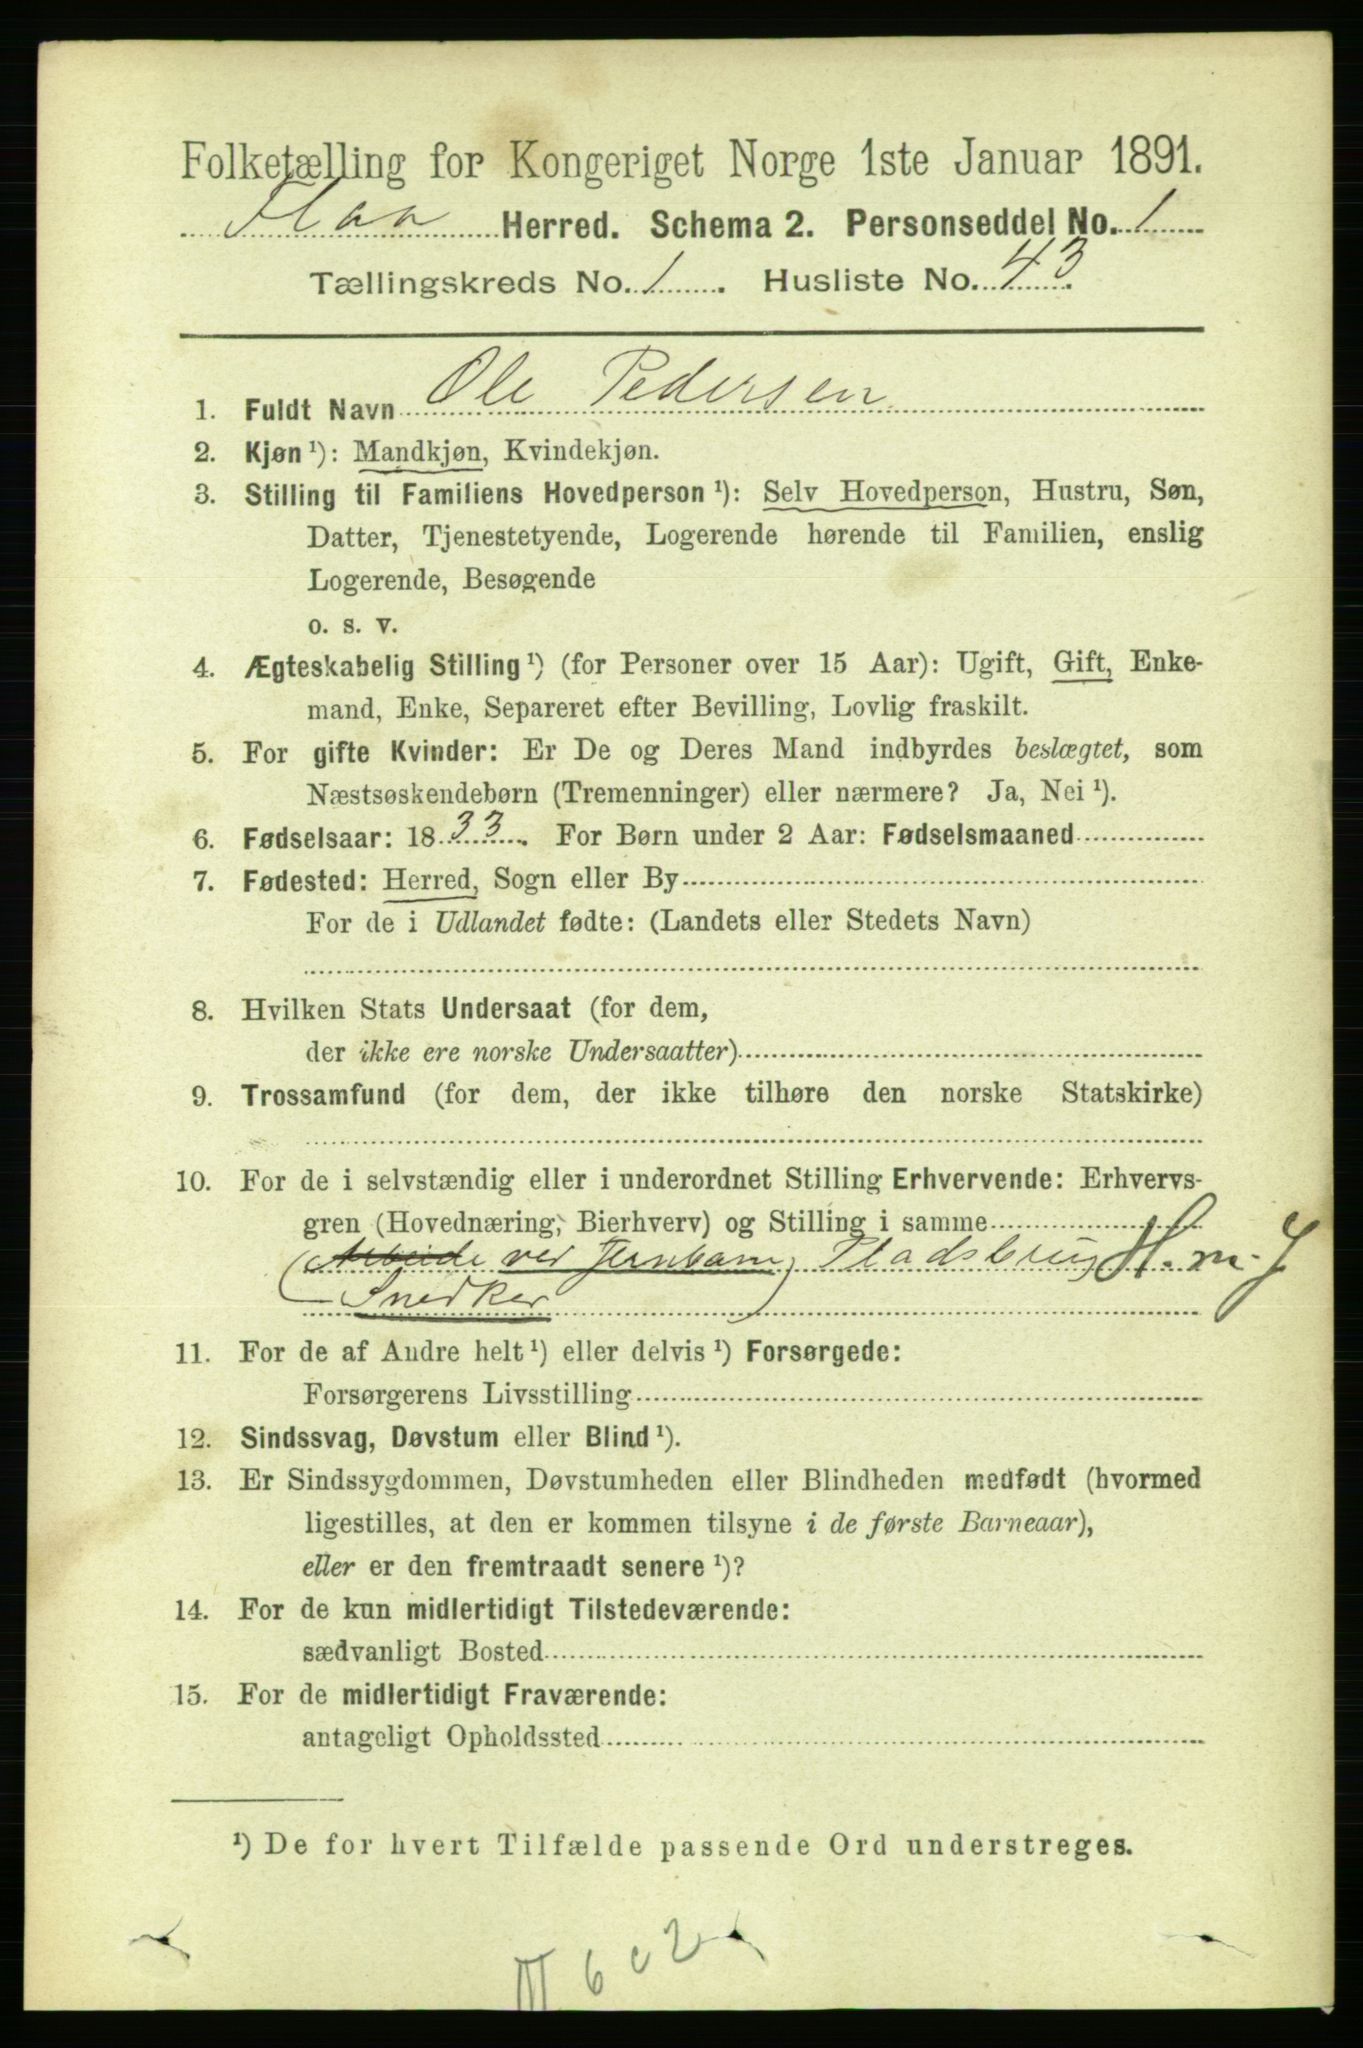 Folketælling for Kongeriget Norge 1ste Januar 1891.
Flaa Herred. Schema 2. Personseddel No. 1
Tællingskreds No. 1. Husliste No. 43.
1. Fuldt Navn Ole Pedersen
2. Kjøn ¹): Mandkjøn, Kvindekjøn.
3. Stilling til Familiens Hovedperson ¹): Selv Hovedperson, Hustru, Søn,
Datter, Tjenestetyende, Logerende hørende til Familien, enslig
Logerende, Besøgende
o. s. v.
4. Ægteskabelig Stilling ¹) (for Personer over 15 Aar): Ugift, Gift, Enke-
mand, Enke, Separeret efter Bevilling, Lovlig fraskilt.
5. For gifte Kvinder: Er De og Deres Mand indbyrdes beslægtet, som
Næstsøskendebørn (Tremenninger) eller nærmere? Ja, Nei ¹).
6. Fødselsaar: 1833. For Børn under 2 Aar: Fødselsmaaned
7. Fødested: Herred, Sogn eller By
For de i Udlandet fødte: (Landets eller Stedets Navn)
8. Hvilken Stats Undersaat (for dem,
der ikke ere norske Undersaatter)
9. Trossamfund (for dem, der ikke tilhøre den norske Statskirke)
10. For de i selvstændig eller i underordnet Stilling Erhvervende: Erhvervs-
gren (Hovednæring, Bierhverv) og Stilling i samme
(Arbeide ved Jernbane) Pladsbrug H. m. J
Snedker
11. For de af Andre helt ¹) eller delvis ¹) Forsørgede:
Forsørgerens Livsstilling
12. Sindssvag, Døvstum eller Blind ¹).
13. Er Sindssygdommen, Døvstumheden eller Blindheden medfødt (hvormed
ligestilles, at den er kommen tilsyne i de første Barneaar),
eller er den fremtraadt senere ¹)?
14. For de kun midlertidigt Tilstedeværende:
sædvanligt Bosted
15. For de midlertidigt Fraværende:
antageligt Opholdssted
¹) De for hvert Tilfælde passende Ord understreges.
III 6 c 2